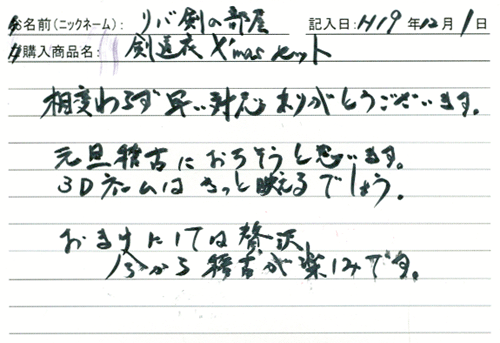 お名前(ニックネーム): リバ剣の部屋 記入日: H19 年 12 月 1 日
購入商品名: 剣道衣 X'mas セット
相変わらず早い対応ありがとうございます。
元旦稽古におろそうと思います。
3Dネームはきっと映えるでしょう。
おまけにしては贅沢、
今から稽古が楽しみです。